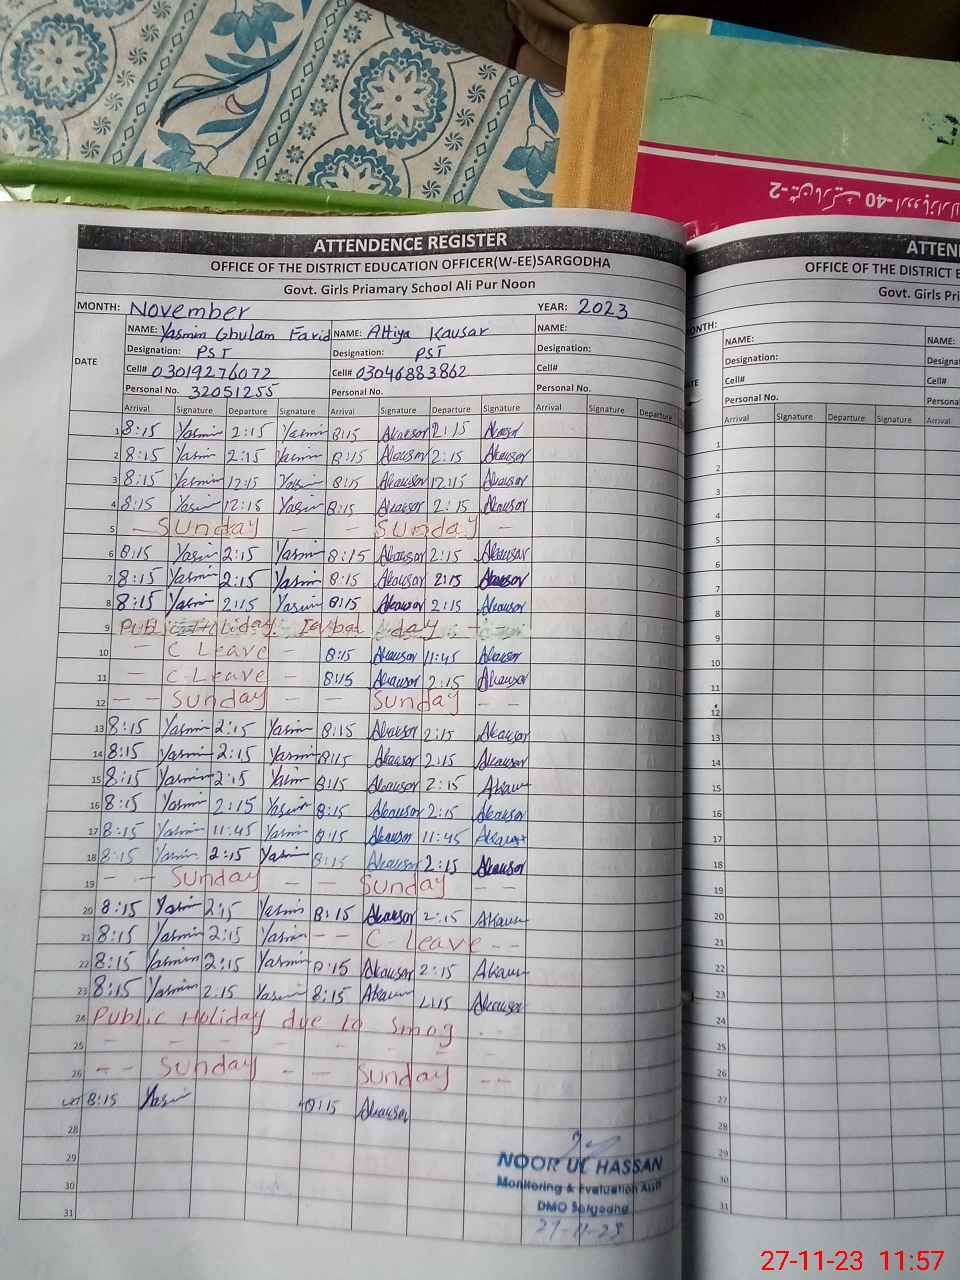 ATTENDENCE REGISTER
OFFICE OF THE DISTRICT EDUCATION OFFICER(W-EE)SARGODHA
Govt. Girls Priamary School Ali Pur Noon
MONTH: November YEAR: 2023
DATE
NAME: Yasmin Ghulam Farid NAME: Attiya Kausar NAME:
Designation: PST Designation: PST Designation:
Cell# 03019276072 Cell# 03046883862 Cell#
Personal No. 32051255 Personal No. Personal No.
Arrival Signature Departure Signature Arrival Signature Departure Signature Arrival Signature Departure
1 8:15 Yasmin 2:15 Yasmin 8:15 Akausar 2:15 Akausar
2 8:15 Yasmin 2:15 Yasmin 8:15 Akausar 2:15 Akausar
3 8:15 Yasmin 12:15 Yasmin 8:15 Akausar 12:15 Akausar
4 8:15 Yasmin 12:15 Yasmin 8:15 Akausar 2:15 Akausar
5 - Sunday - - Sunday -
6 8:15 Yasmin 2:15 Yasmin 8:15 Akausar 2:15 Akausar
7 8:15 Yasmin 2:15 Yasmin 8:15 Akausar 2:15 Akausar
8 8:15 Yasmin 2:15 Yasmin 8:15 Akausar 2:15 Akausar
9 Public Holiday Iqbal day -
10 - C Leave - 8:15 Akausar 11:45 Akausar
11 - C Leave - 8:15 Akausar 2:15 Akausar
12 - - Sunday - Sunday - -
13 8:15 Yasmin 2:15 Yasmin 8:15 Akausar 2:15 Akausar
14 8:15 Yasmin 2:15 Yasmin 8:15 Akausar 2:15 Akausar
15 8:15 Yasmin 2:15 Yasmin 8:15 Akausar 2:15 Akausar
16 8:15 Yasmin 2:15 Yasmin 8:15 Akausar 2:15 Akausar
17 8:15 Yasmin 11:45 Yasmin 8:15 Akausar 11:45 Akausar
18 8:15 Yasmin 2:15 Yasmin 8:15 Akausar 2:15 Akausar
19 - - Sunday - - Sunday - -
20 8:15 Yasmin 2:15 Yasmin 8:15 Akausar 2:15 Akausar
21 8:15 Yasmin 2:15 Yasmin - - C-Leave - -
22 8:15 Yasmin 2:15 Yasmin 8:15 Akausar 2:15 Akausar
23 8:15 Yasmin 2:15 Yasmin 8:15 Akausar 2:15 Akausar
24 Public Holiday due to Smog - -
25 - - - - - - - -
26 - - Sunday - - Sunday - -
8:15 Yasmin 8:15 Akausar
28
29
30
31
NOOR UL HASSAN
Monitoring & Evaluation Asst
DMO Sargodha
27-11-23
ATTEN
OFFICE OF THE DISTRICT E
Govt. Girls Pri
NAME: NAME:
Designation:
Cell# Cell#
Personal No. Personal
Arrival Signature Departure Signature Arrival
1
2
3
4
5
6
7
8
9
10
11
12
13
14
15
16
17
18
19
20
21
22
23
24
25
26
27
28
29
30
31
27-11-23 11:57